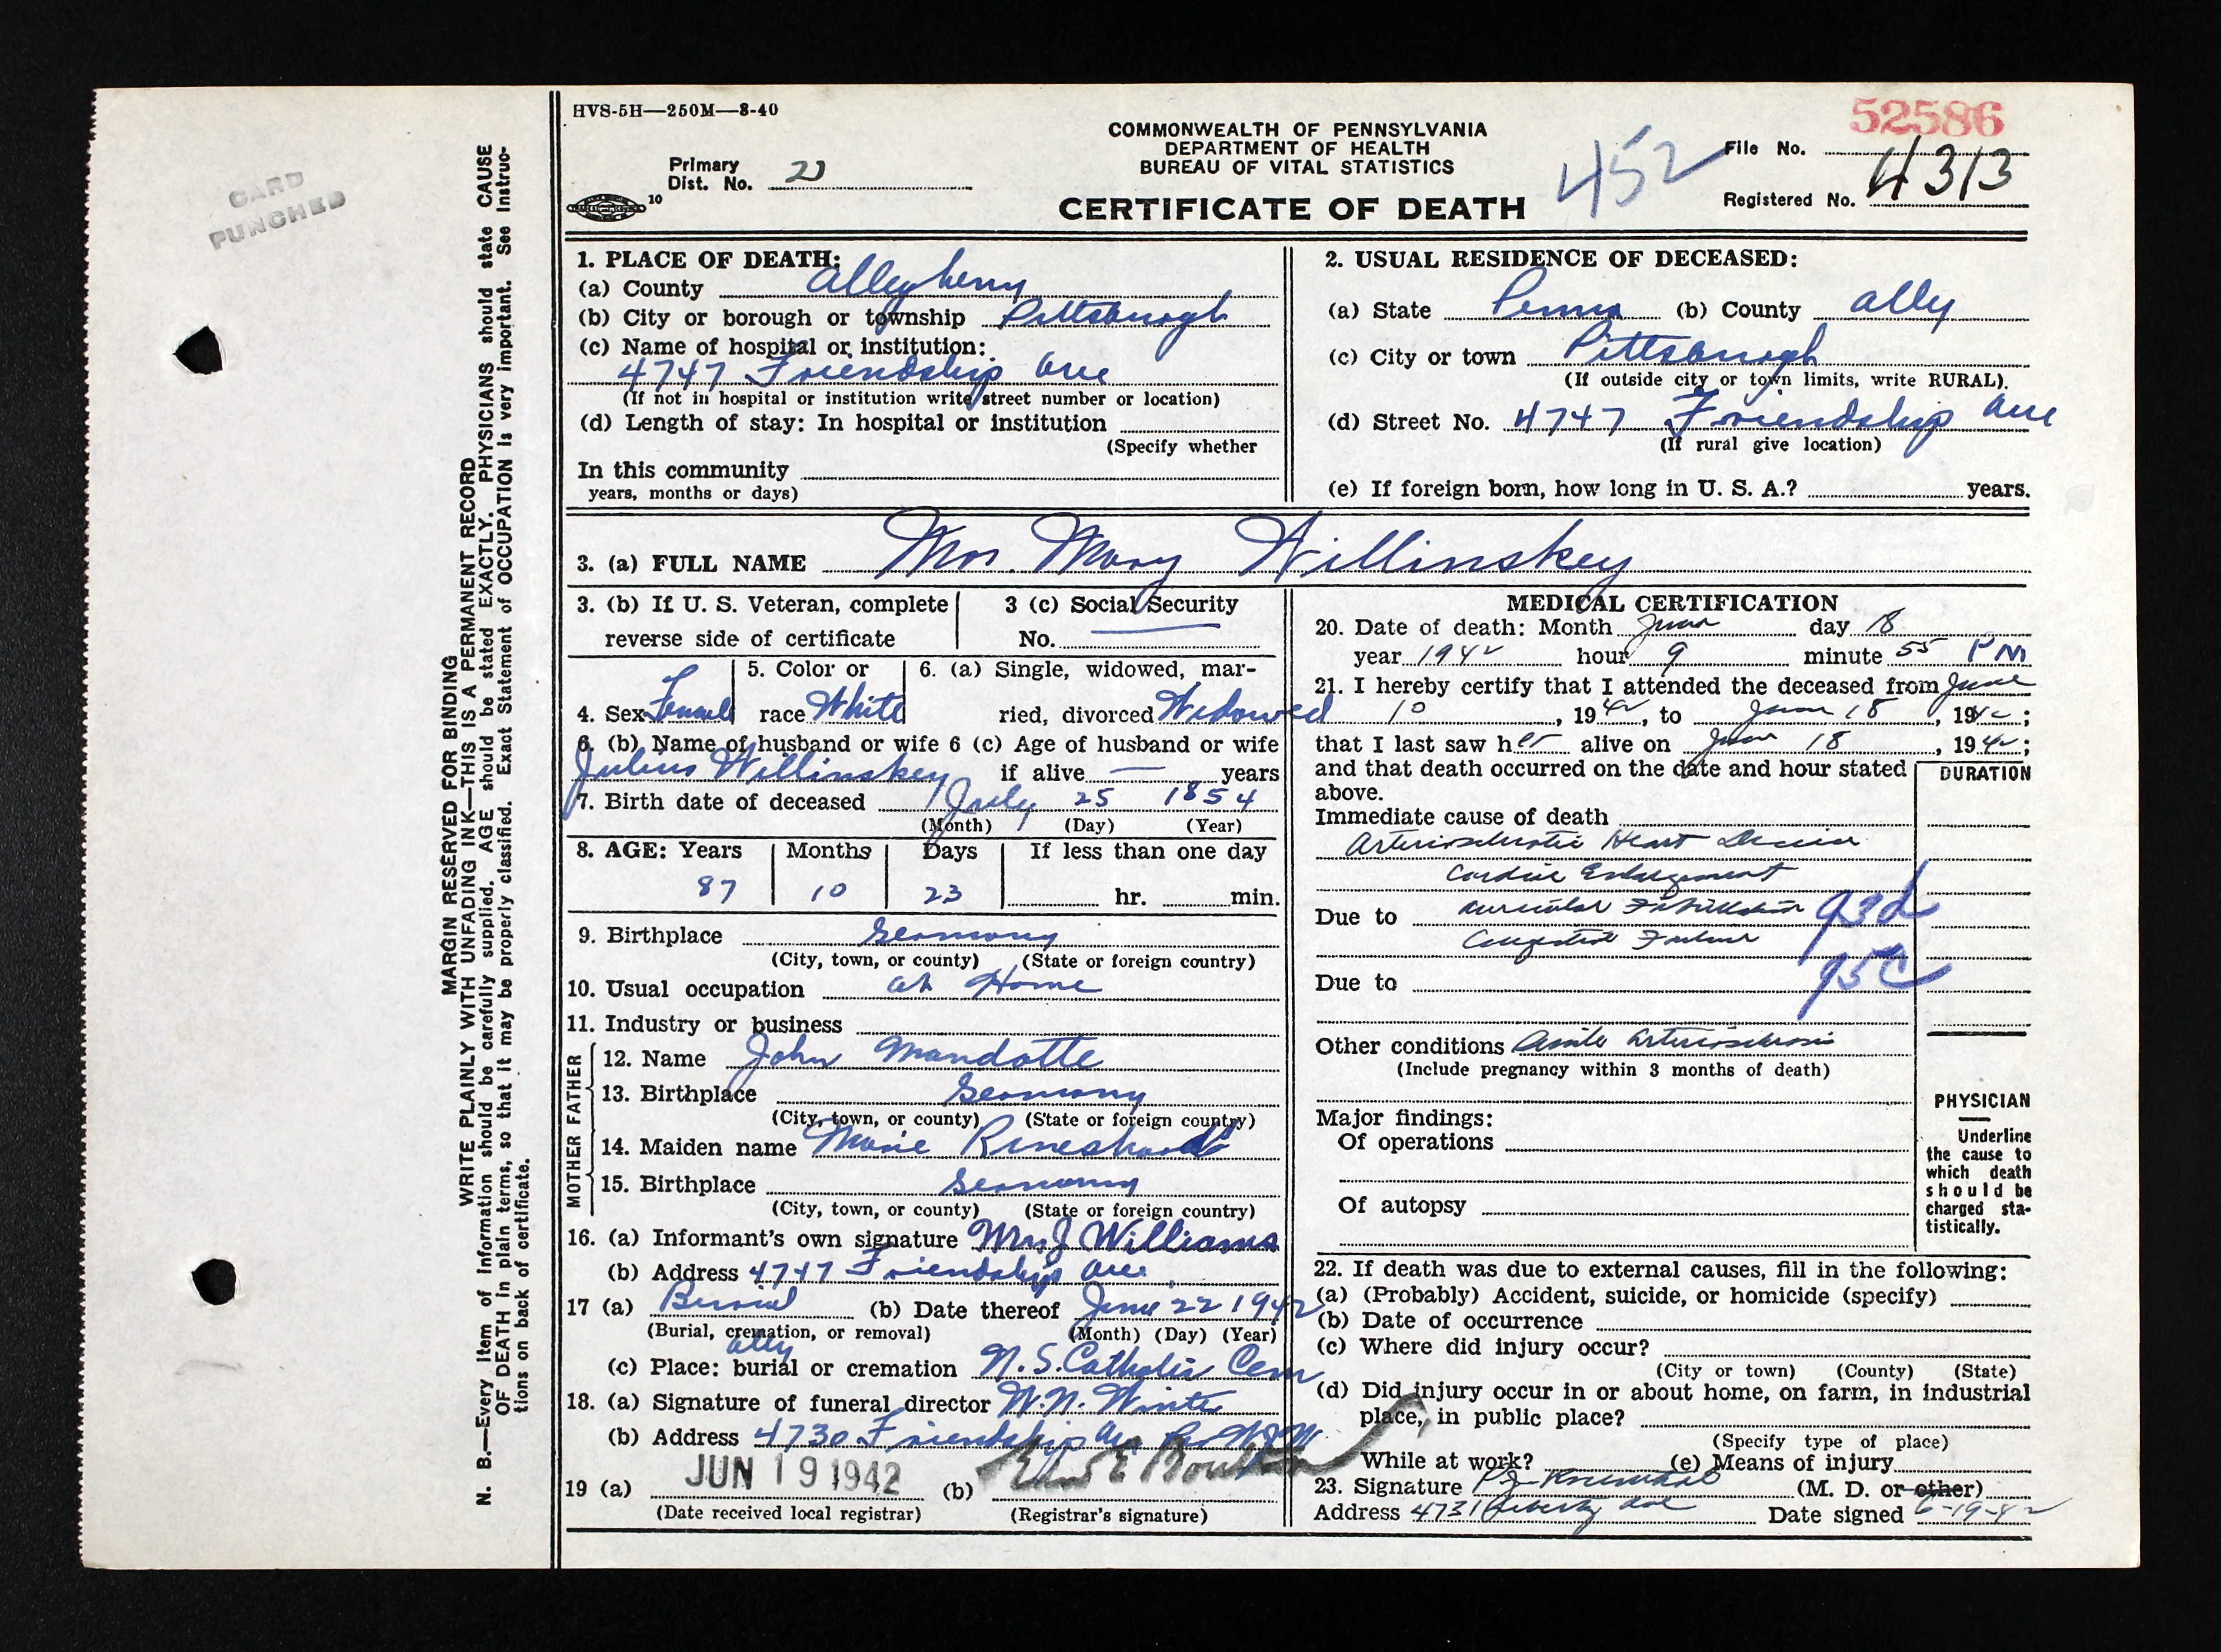 HVS-5H—250M—8-40
52586
COMMONWEALTH OF PENNSYLVANIA
DEPARTMENT OF HEALTH
BUREAU OF VITAL STATISTICS
CERTIFICATE OF DEATH
452
Primary
Dist. No.
10
File No.
Registered No. 4313
CARD
PUNCHED
MARGIN RESERVED FOR BINDING
WRITE PLAINLY WITH UNFADING INK—THIS IS A PERMANENT RECORD
N. B.—Every item of information should be carefully supplied. AGE should be stated EXACTLY. PHYSICIANS should state CAUSE
OF DEATH in plain terms, so that it may be properly classified. Exact Statement of OCCUPATION is very important. See Instruc-
tions on back of certificate.
1. PLACE OF DEATH:
(a) County Allegheny
(b) City or borough or township Pittsburgh
(c) Name of hospital or institution:
4747 Friendship Ave
(If not in hospital or institution write street number or location)
(d) Length of stay: In hospital or institution
(Specify whether
In this community
years, months or days)
2. USUAL RESIDENCE OF DECEASED:
(a) State Penna (b) County Ally
(c) City or town Pittsburgh
(If outside city or town limits, write RURAL).
(d) Street No. 4747 Friendship Ave
(If rural give location)
(e) If foreign born, how long in U. S. A.? years.
3. (a) FULL NAME Mrs. Mary Willinskey
3. (b) If U. S. Veteran, complete
reverse side of certificate
3 (c) Social Security
No.
4. Sex Female
5. Color or
race White
6. (a) Single, widowed, mar-
ried, divorced Widowed
6. (b) Name of husband or wife 6 (c) Age of husband or wife
Julius Willinskey if alive — years
7. Birth date of deceased July 25 1854
(Month) (Day) (Year)
8. AGE: Years Months Days If less than one day
87 10 23 hr. min.
9. Birthplace Germany
(City, town, or county) (State or foreign country)
10. Usual occupation At Home
11. Industry or business
FATHER
12. Name John Mandotte
13. Birthplace Germany
(City, town, or county) (State or foreign country)
MOTHER
14. Maiden name Marie
15. Birthplace Germany
(City, town, or county) (State or foreign country)
16. (a) Informant's own signature Mrs J Williams
(b) Address 4747 Friendship Ave
17 (a) Burial (b) Date thereof June 22 1942
(Burial, cremation, or removal) (Month) (Day) (Year)
Ally
(c) Place: burial or cremation N. S. Catholic Cem
18. (a) Signature of funeral director W. N. Winter
(b) Address 4730 Friendship Ave
19 (a) JUN 19 1942 (b)
(Date received local registrar) (Registrar's signature)
MEDICAL CERTIFICATION
20. Date of death: Month June day 18
year 1942 hour 9 minute 55 PM
21. I hereby certify that I attended the deceased from June
10, 1942, to June 18, 1942;
that I last saw her alive on June 18, 1942;
and that death occurred on the date and hour stated
above.
DURATION
Immediate cause of death
Arteriosclerotic Heart Disease
Cardiac Enlargement
Due to Auricular Fibrillation
Congestive Failure
93d
95c
Due to
Other conditions Arteriosclerosis
(Include pregnancy within 3 months of death)
Major findings:
Of operations
Of autopsy
PHYSICIAN
Underline
the cause to
which death
should be
charged sta-
tistically.
22. If death was due to external causes, fill in the following:
(a) (Probably) Accident, suicide, or homicide (specify)
(b) Date of occurrence
(c) Where did injury occur?
(City or town) (County) (State)
(d) Did injury occur in or about home, on farm, in industrial
place, in public place?
(Specify type of place)
While at work? (e) Means of injury
23. Signature (M. D. or other)
Address 4731 Liberty Ave Date signed 6-19-42